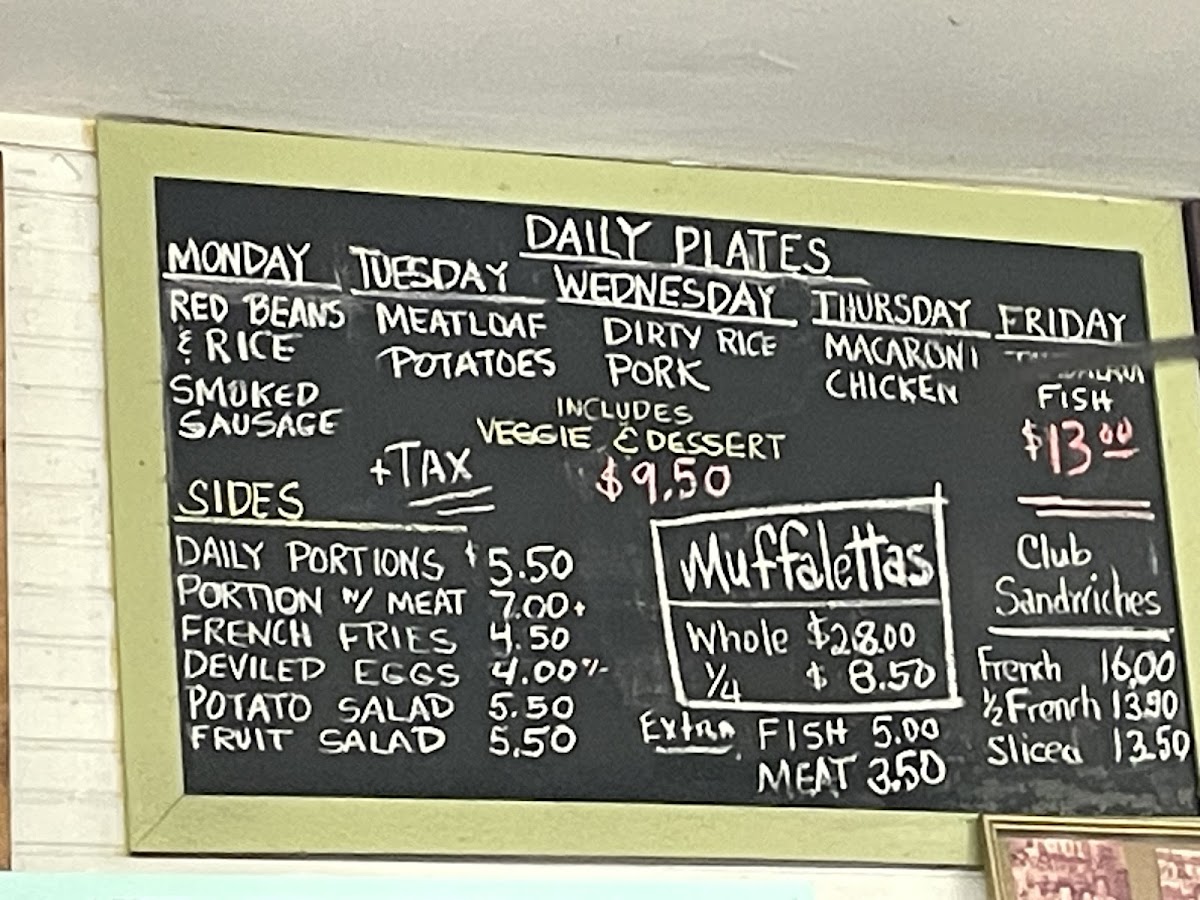 DAILY PLATES
MONDAY
RED BEANS
& RICE
SMOKED
SAUSAGE
TUESDAY
MEATLOAF
POTATOES
WEDNESDAY
DIRTY RICE
PORK
THURSDAY
MACARONI
CHICKEN
FRIDAY
FISH
$13.00
INCLUDES
VEGGIE & DESSERT
+TAX
$9.50
SIDES
DAILY PORTIONS $5.50
PORTION W/ MEAT 7.00+
FRENCH FRIES 4.50
DEVILED EGGS 4.00
POTATO SALAD 5.50
FRUIT SALAD 5.50
Muffalettas
Whole $28.00
1/4 $8.50
Extra FISH 5.00
MEAT 3.50
Club
Sandwiches
French 16.00
½ French 13.90
Sliced 13.50